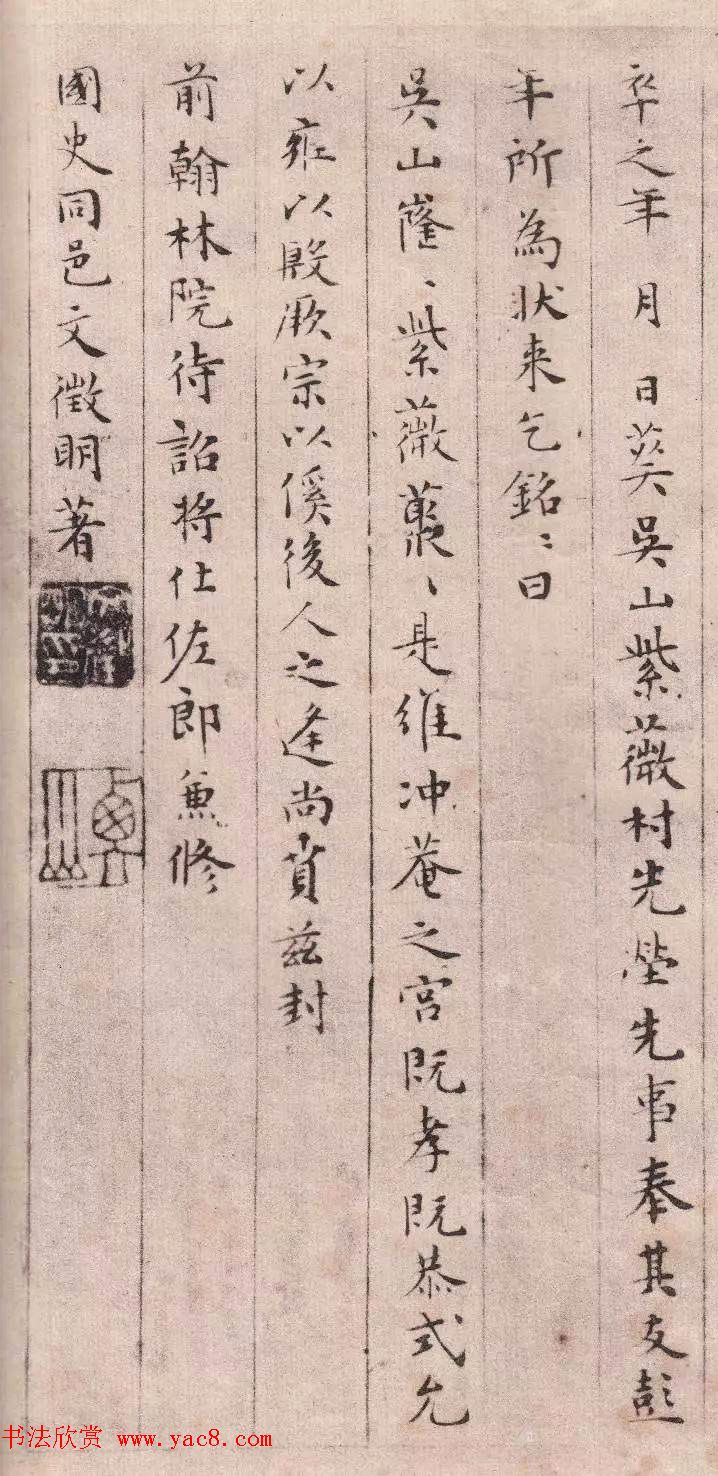 卒之年 月 日葬吳山紫薇村先塋先事奉其友彭
年所為狀来乞銘〻曰
吳山嶐〻紫薇叢〻是維冲菴之宮既孝既恭式允
以雍以殿厥宗以徯後人之逢尚賁茲封
前翰林院待詔將仕佐郎兼修
國史同邑文徵明著
书法欣赏 www.yac8.com